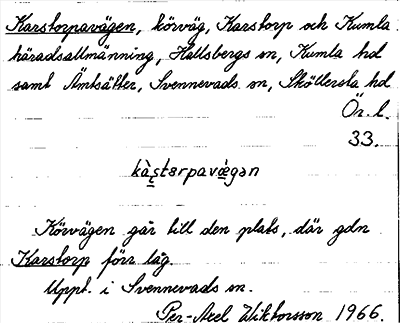 Karstorpavägen, körväg, Karstorp och Kumla
häradsallmänning, Hallsbergs sn, Kumla hd
samt Ämtsätter, Svennevads sn, Sköllersta hd
Ör. l.
33.
kàʂtərpavä̀gən
Körvägen går till den plats, där gdn
Karstorp förr låg.
Uppt. i Svennevads sn.
Per-Axel Wiktorsson 1966.